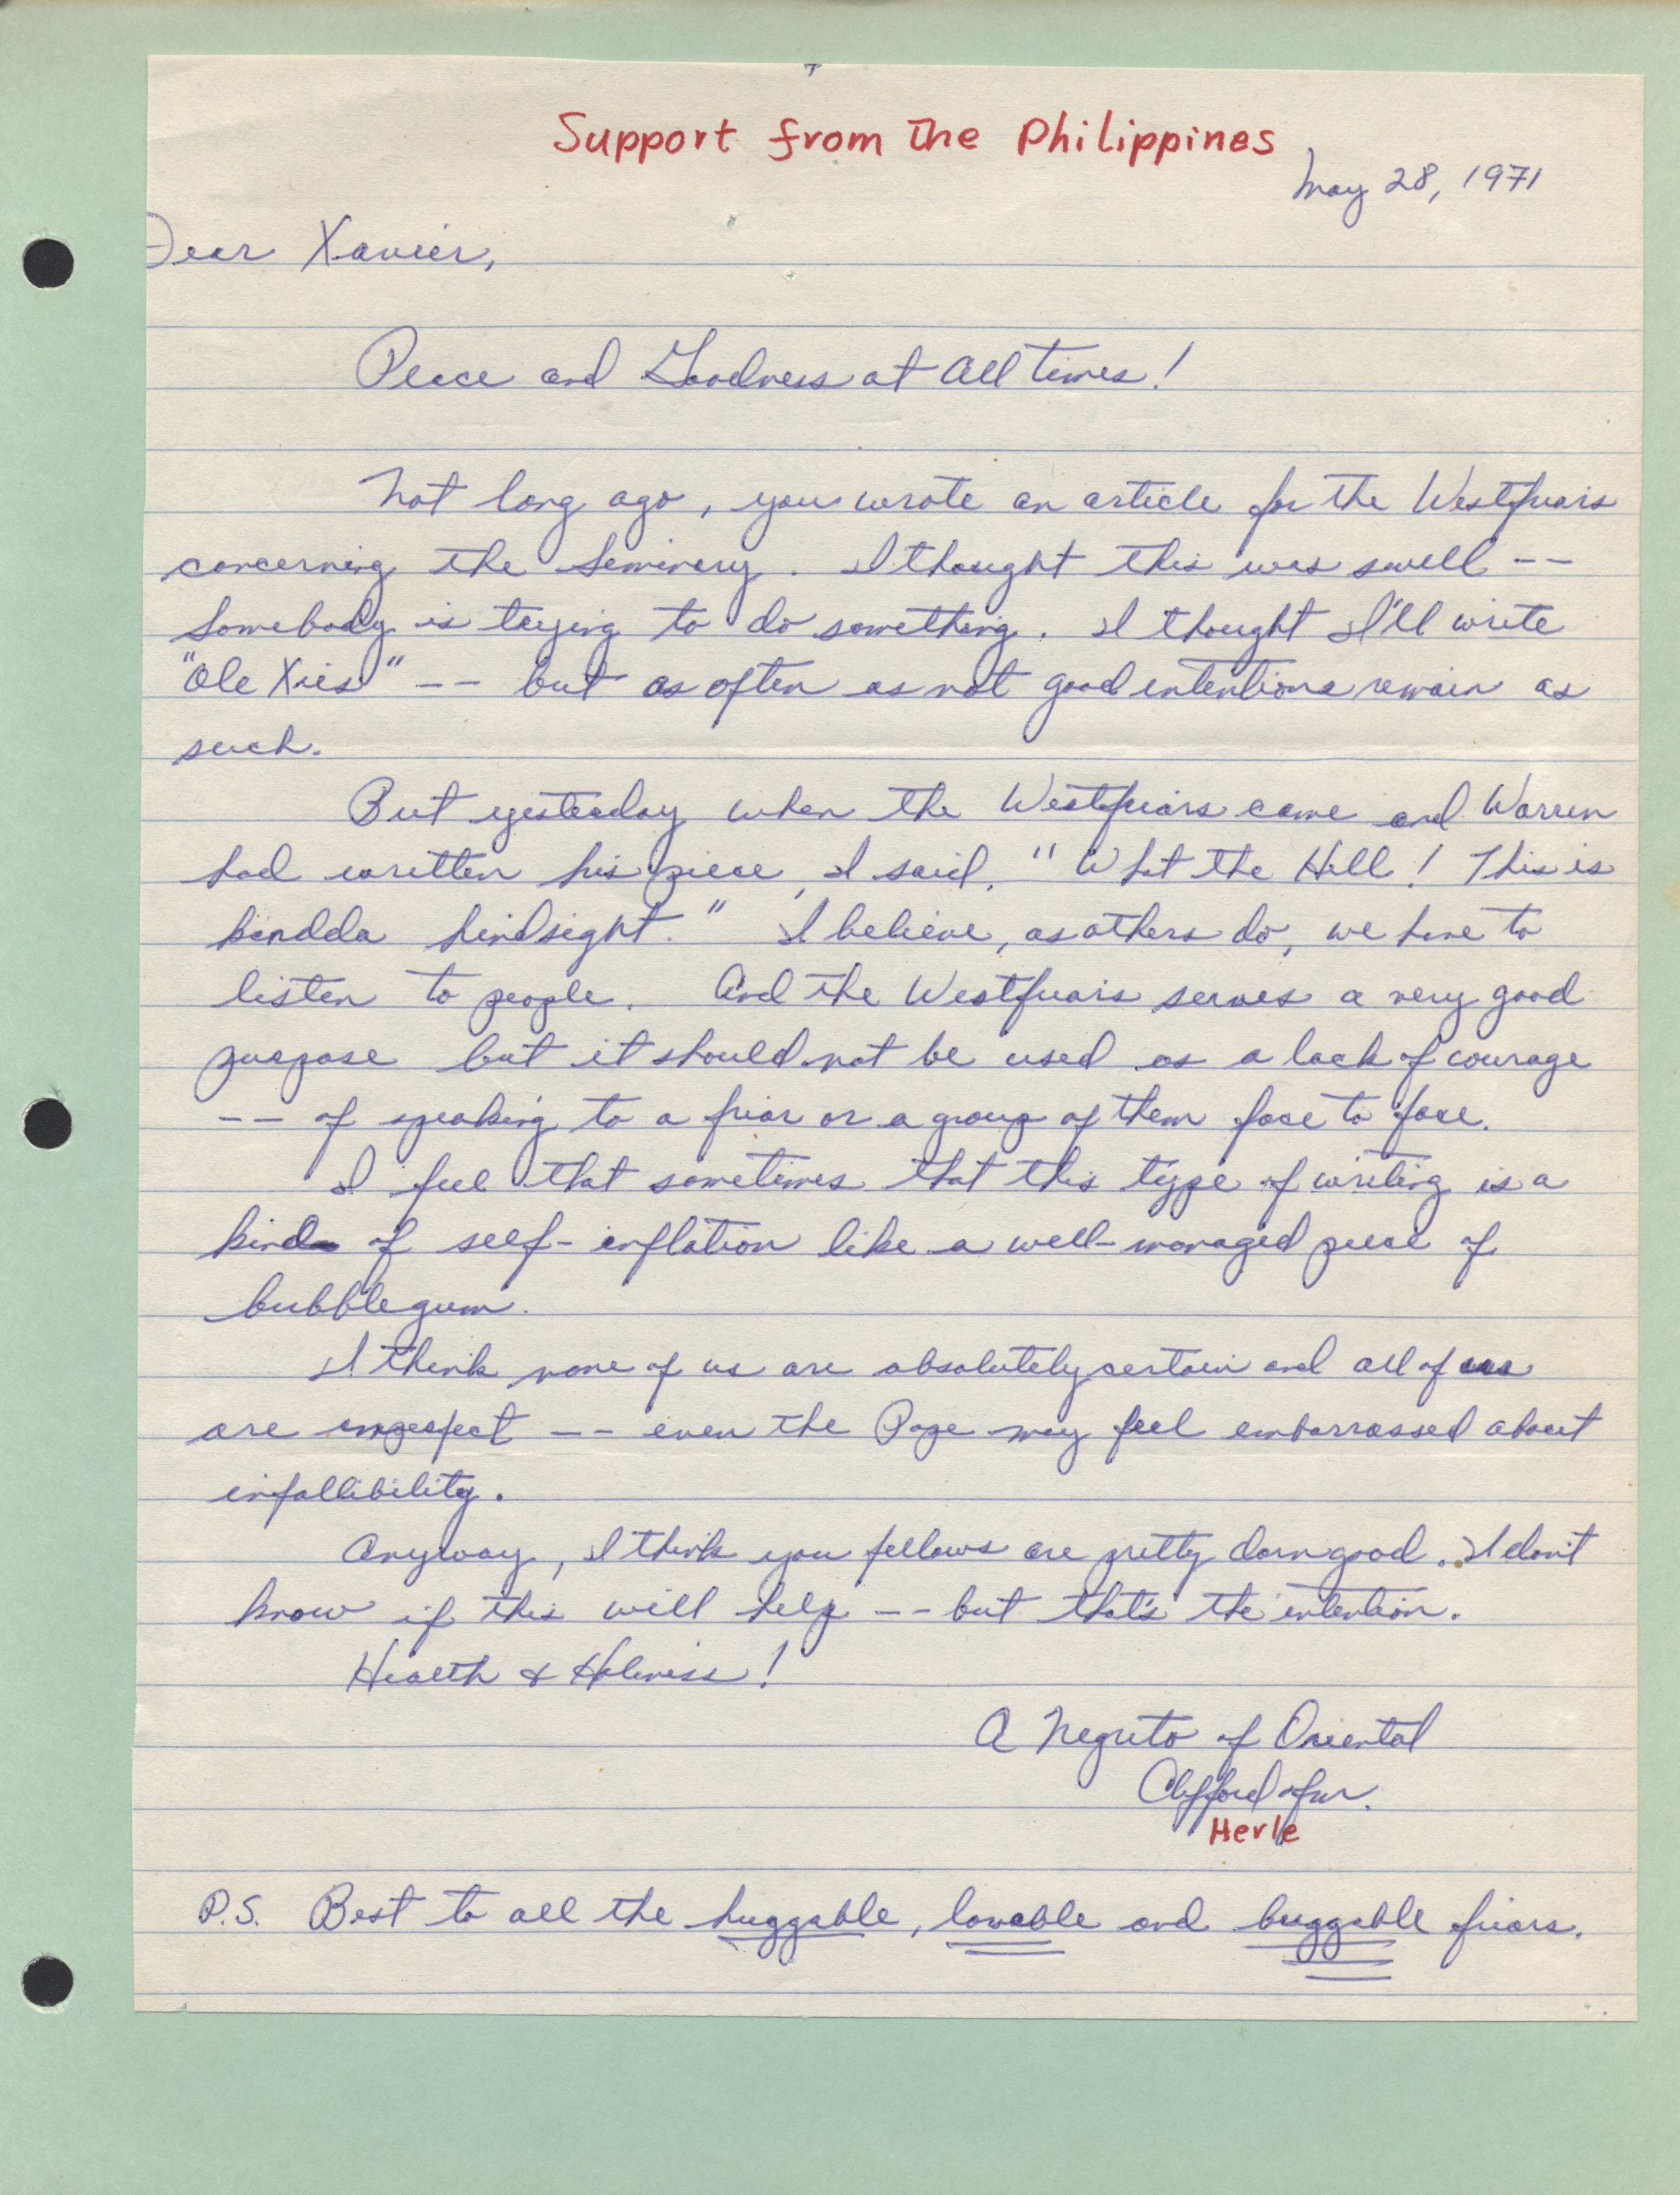 Support from the Philippines
May 28, 1971
Dear Xavier,
Peace and Goodness at all times!
Not long ago, you wrote an article for the Westfriars
concerning the Seminary. I thought this was swell --
Somebody is trying to do something. I thought I'll write
"Ole Xies" -- but as often as not good intentions remain as
such.
But yesterday when the Westfriars came and Warren
had written his piece, I said, "What the Hell! This is
kindda hindsight." I believe, as others do, we have to
listen to people. And the Westfriars serves a very good
purpose but it should not be used as a lack of courage
-- of speaking to a friar or a group of them face to face.
I feel that sometimes that this type of writing is a
kind of self-inflation like a well-managed piece of
bubblegum.
I think none of us are absolutely certain and all of us
are imperfect -- even the Pope may feel embarrassed about
infallibility.
Anyway, I think you fellows are pretty darn good. I don't
know if this will help -- but that's the intention.
Health & Holiness!
A Negrito of Oriental
Clifford ofm.
Herle
P.S. Best to all the huggable, lovable and buggable friars.